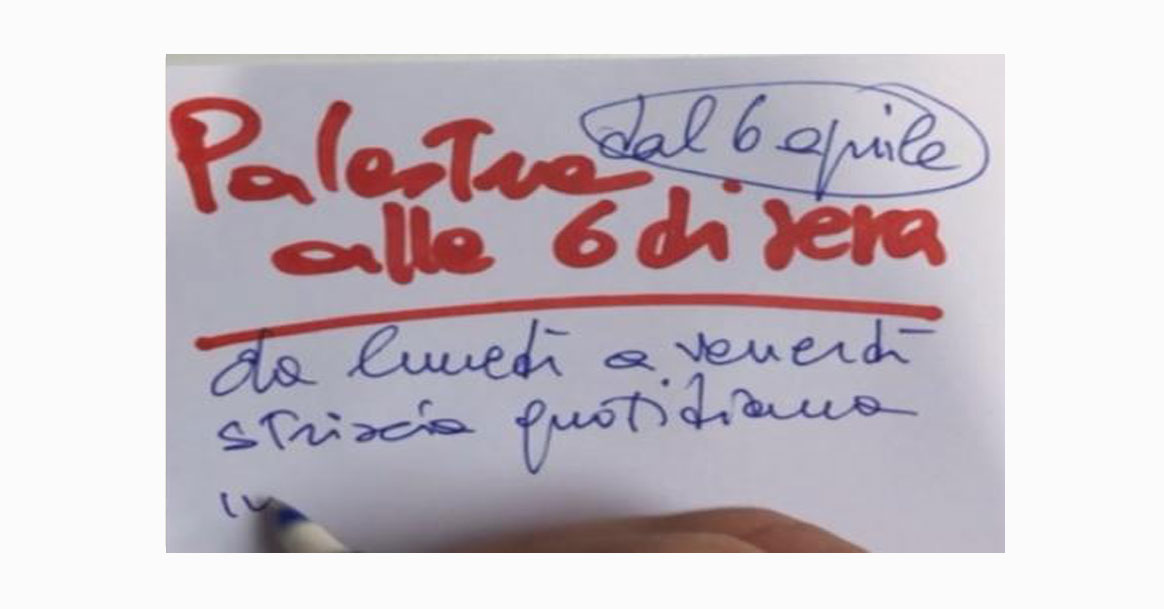 Palestra
dal 6 aprile
alle 6 di sera
da lunedì a venerdì
striscia quotidiana